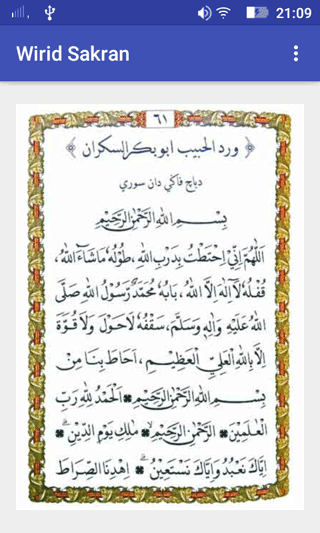 21:09
Wirid Sakran
٦١
﴿ ورد الحبيب ابو بكر السكران ﴾
دباچ ڤاڬي دان سوري
بِسْمِ اللهِ الرَّحْمٰنِ الرَّحِيْمِ
اَللّٰهُمَّ اِنِّيْ احْتَطْتُ بِدَرْبِ اللهِ، طُوْلُهُ مَاشَآءَ اللهُ،
قُفْلُهُ لَآ اِلٰهَ اِلَّا اللهُ، بَابُهُ مُحَمَّدٌ رَسُوْلُ اللهِ صَلَّى
اللهُ عَلَيْهِ وَاٰلِهِ وَسَلَّمَ، سَقْفُهُ لَاحَوْلَ وَلَا قُوَّةَ
اِلَّا بِاللهِ الْعَلِيِّ الْعَظِيْمِ، اَحَاطَ بِنَا مِنْ
بِسْمِ اللهِ الرَّحْمٰنِ الرَّحِيْمِ ۞ اَلْحَمْدُ لِلّٰهِ رَبِّ
الْعٰلَمِيْنَ ۞ الرَّحْمٰنِ الرَّحِيْمِ ۞ مٰلِكِ يَوْمِ الدِّيْنِ ۞
اِيَّاكَ نَعْبُدُ وَاِيَّاكَ نَسْتَعِيْنُ ۞ اِهْدِنَا الصِّرَاطَ